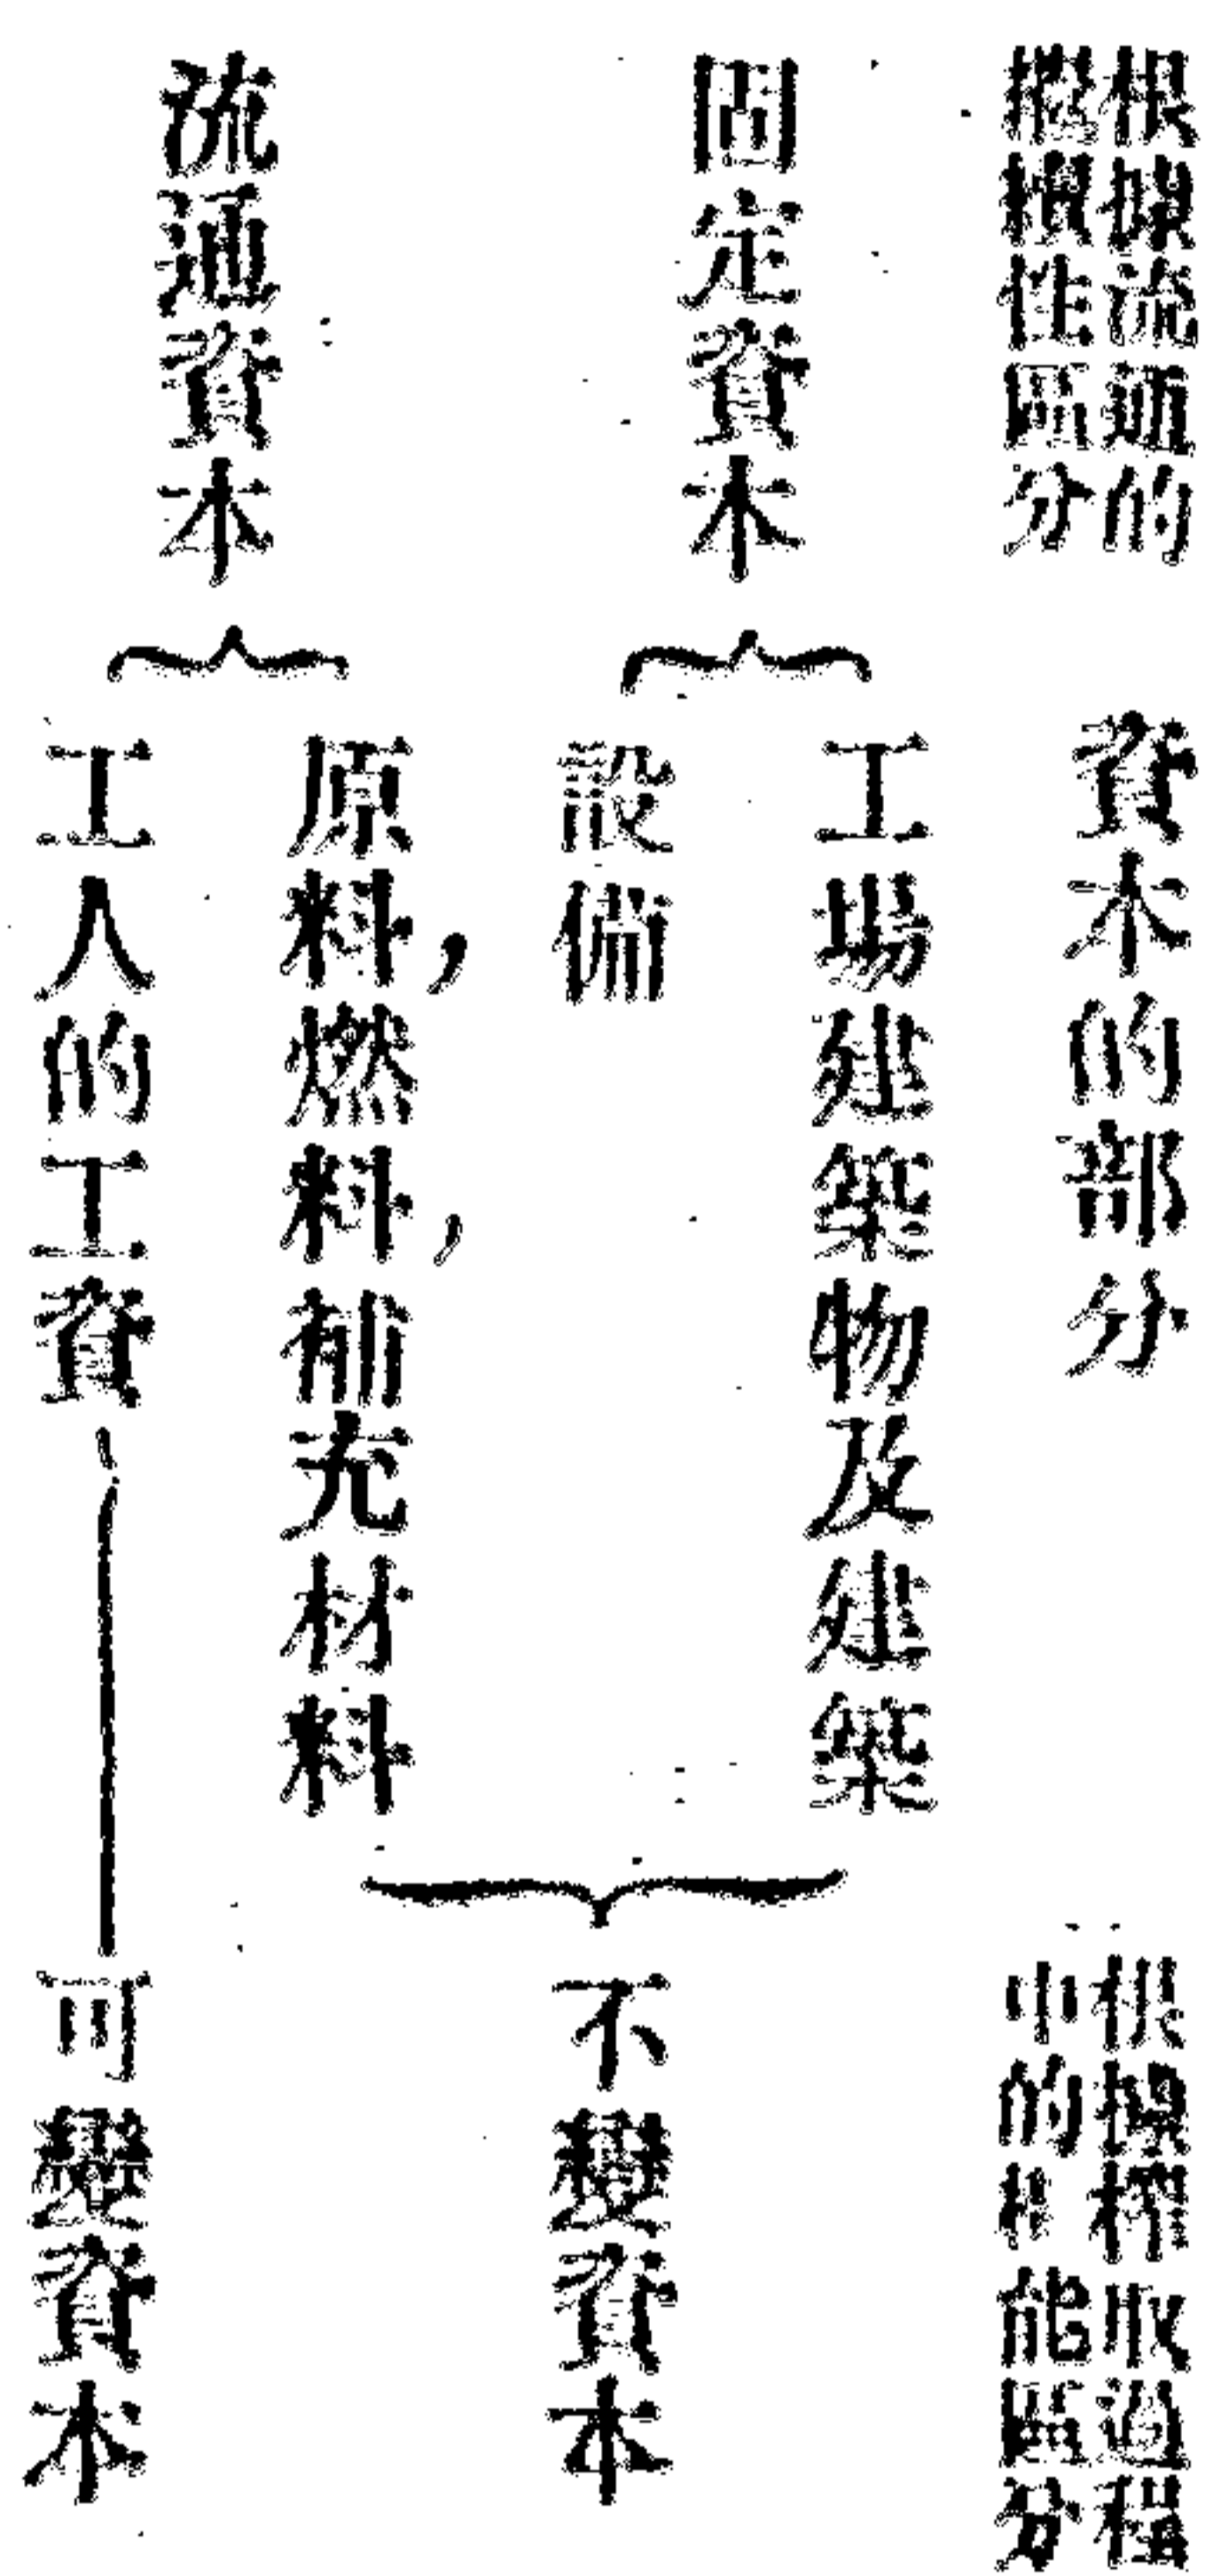 根據流通的
種類性區分
資本的部分
根據榨取過程
中的機能區分
固定資本
工場建築物及建築
設備
不變資本
流通資本
原料，燃料，補充材料
工人的工資
可變資本